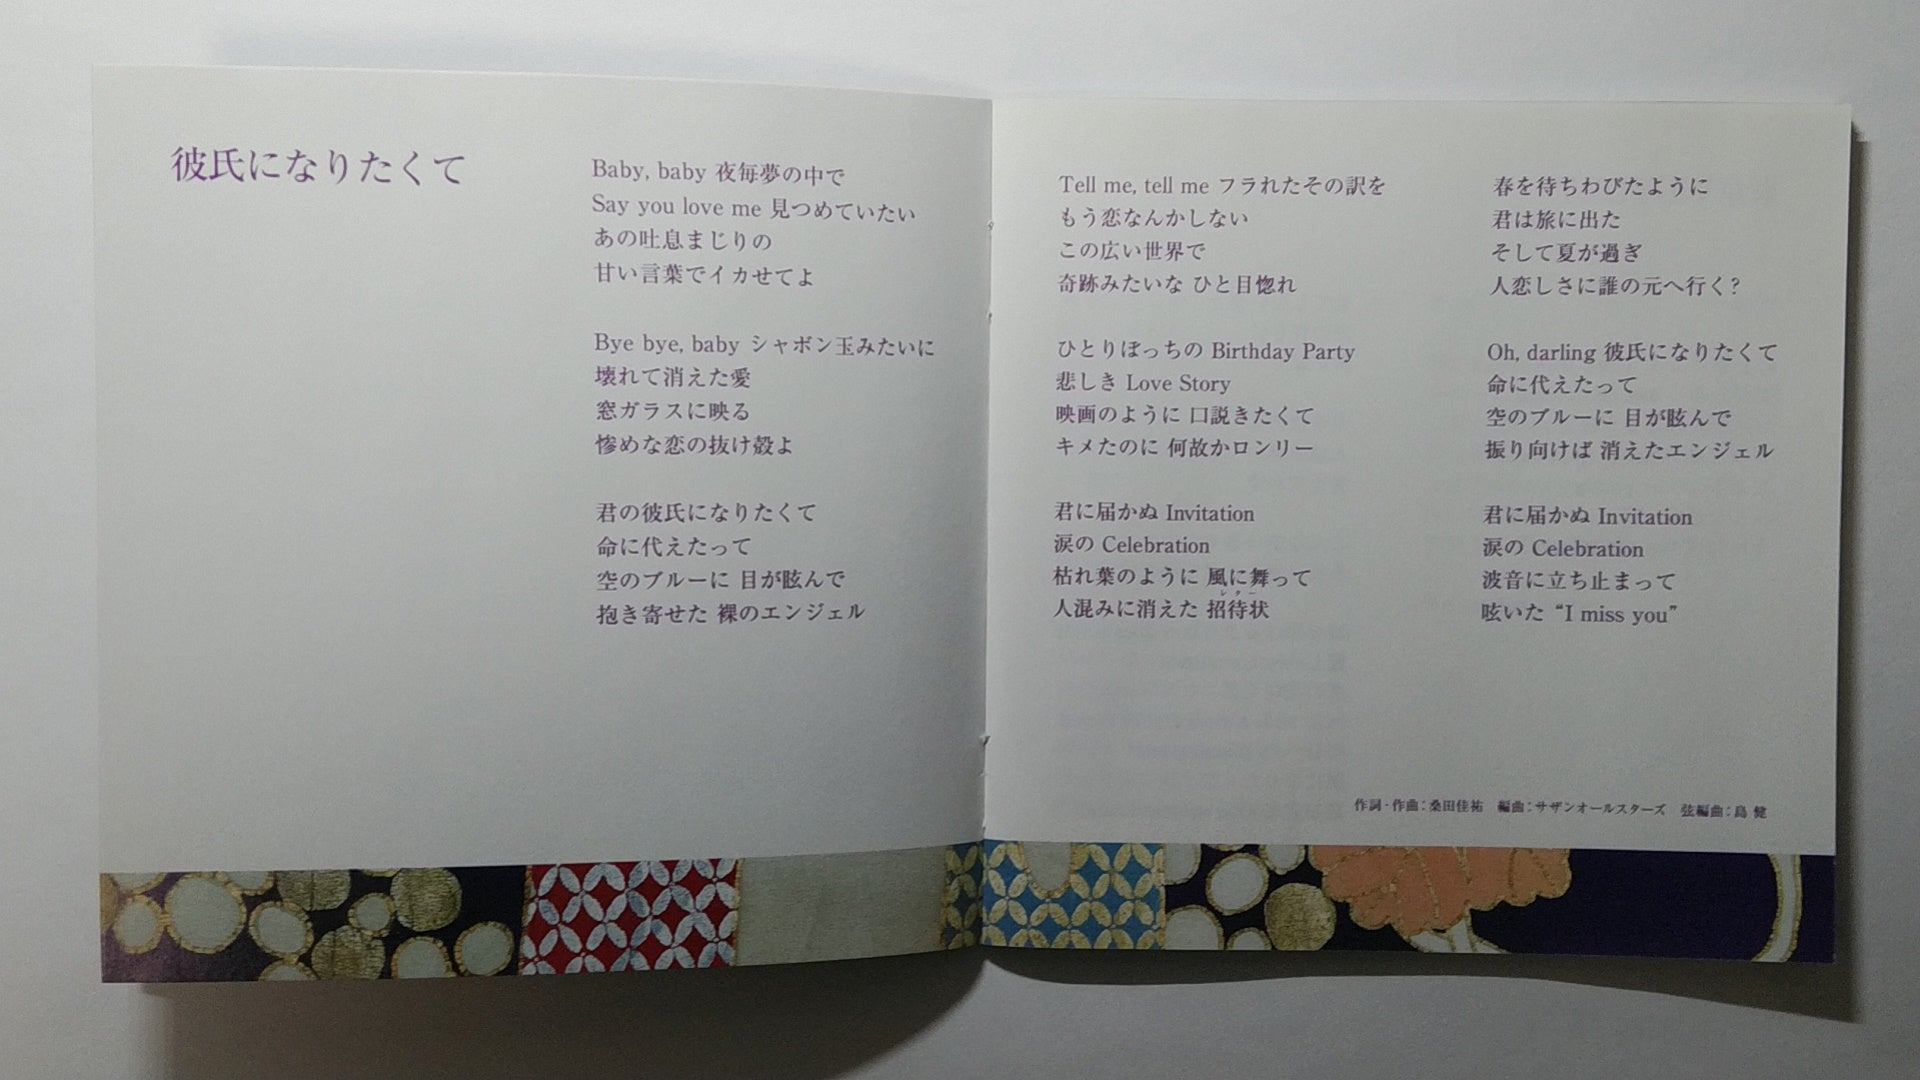 彼氏になりたくて
Baby, baby 夜毎夢の中で
Say you love me 見つめていたい
あの吐息まじりの
甘い言葉でイカせてよ
Bye bye, baby シャボン玉みたいに
壊れて消えた愛
窓ガラスに映る
惨めな恋の抜け殻よ
君の彼氏になりたくて
命に代えたって
空のブルーに 目が眩んで
抱き寄せた 裸のエンジェル
Tell me, tell me フラれたその訳を
もう恋なんかしない
この広い世界で
奇跡みたいな ひと目惚れ
ひとりぼっちの Birthday Party
悲しき Love Story
映画のように 口説きたくて
キメたのに 何故かロンリー
君に届かぬ Invitation
涙の Celebration
枯れ葉のように 風に舞って
人混みに消えた 招待状
レター
春を待ちわびたように
君は旅に出た
そして夏が過ぎ
人恋しさに誰の元へ行く?
Oh, darling 彼氏になりたくて
命に代えたって
空のブルーに 目が眩んで
振り向けば 消えたエンジェル
君に届かぬ Invitation
涙の Celebration
波音に立ち止まって
呟いた “I miss you”
作詞・作曲：桑田佳祐　編曲：サザンオールスターズ　弦編曲：島 健